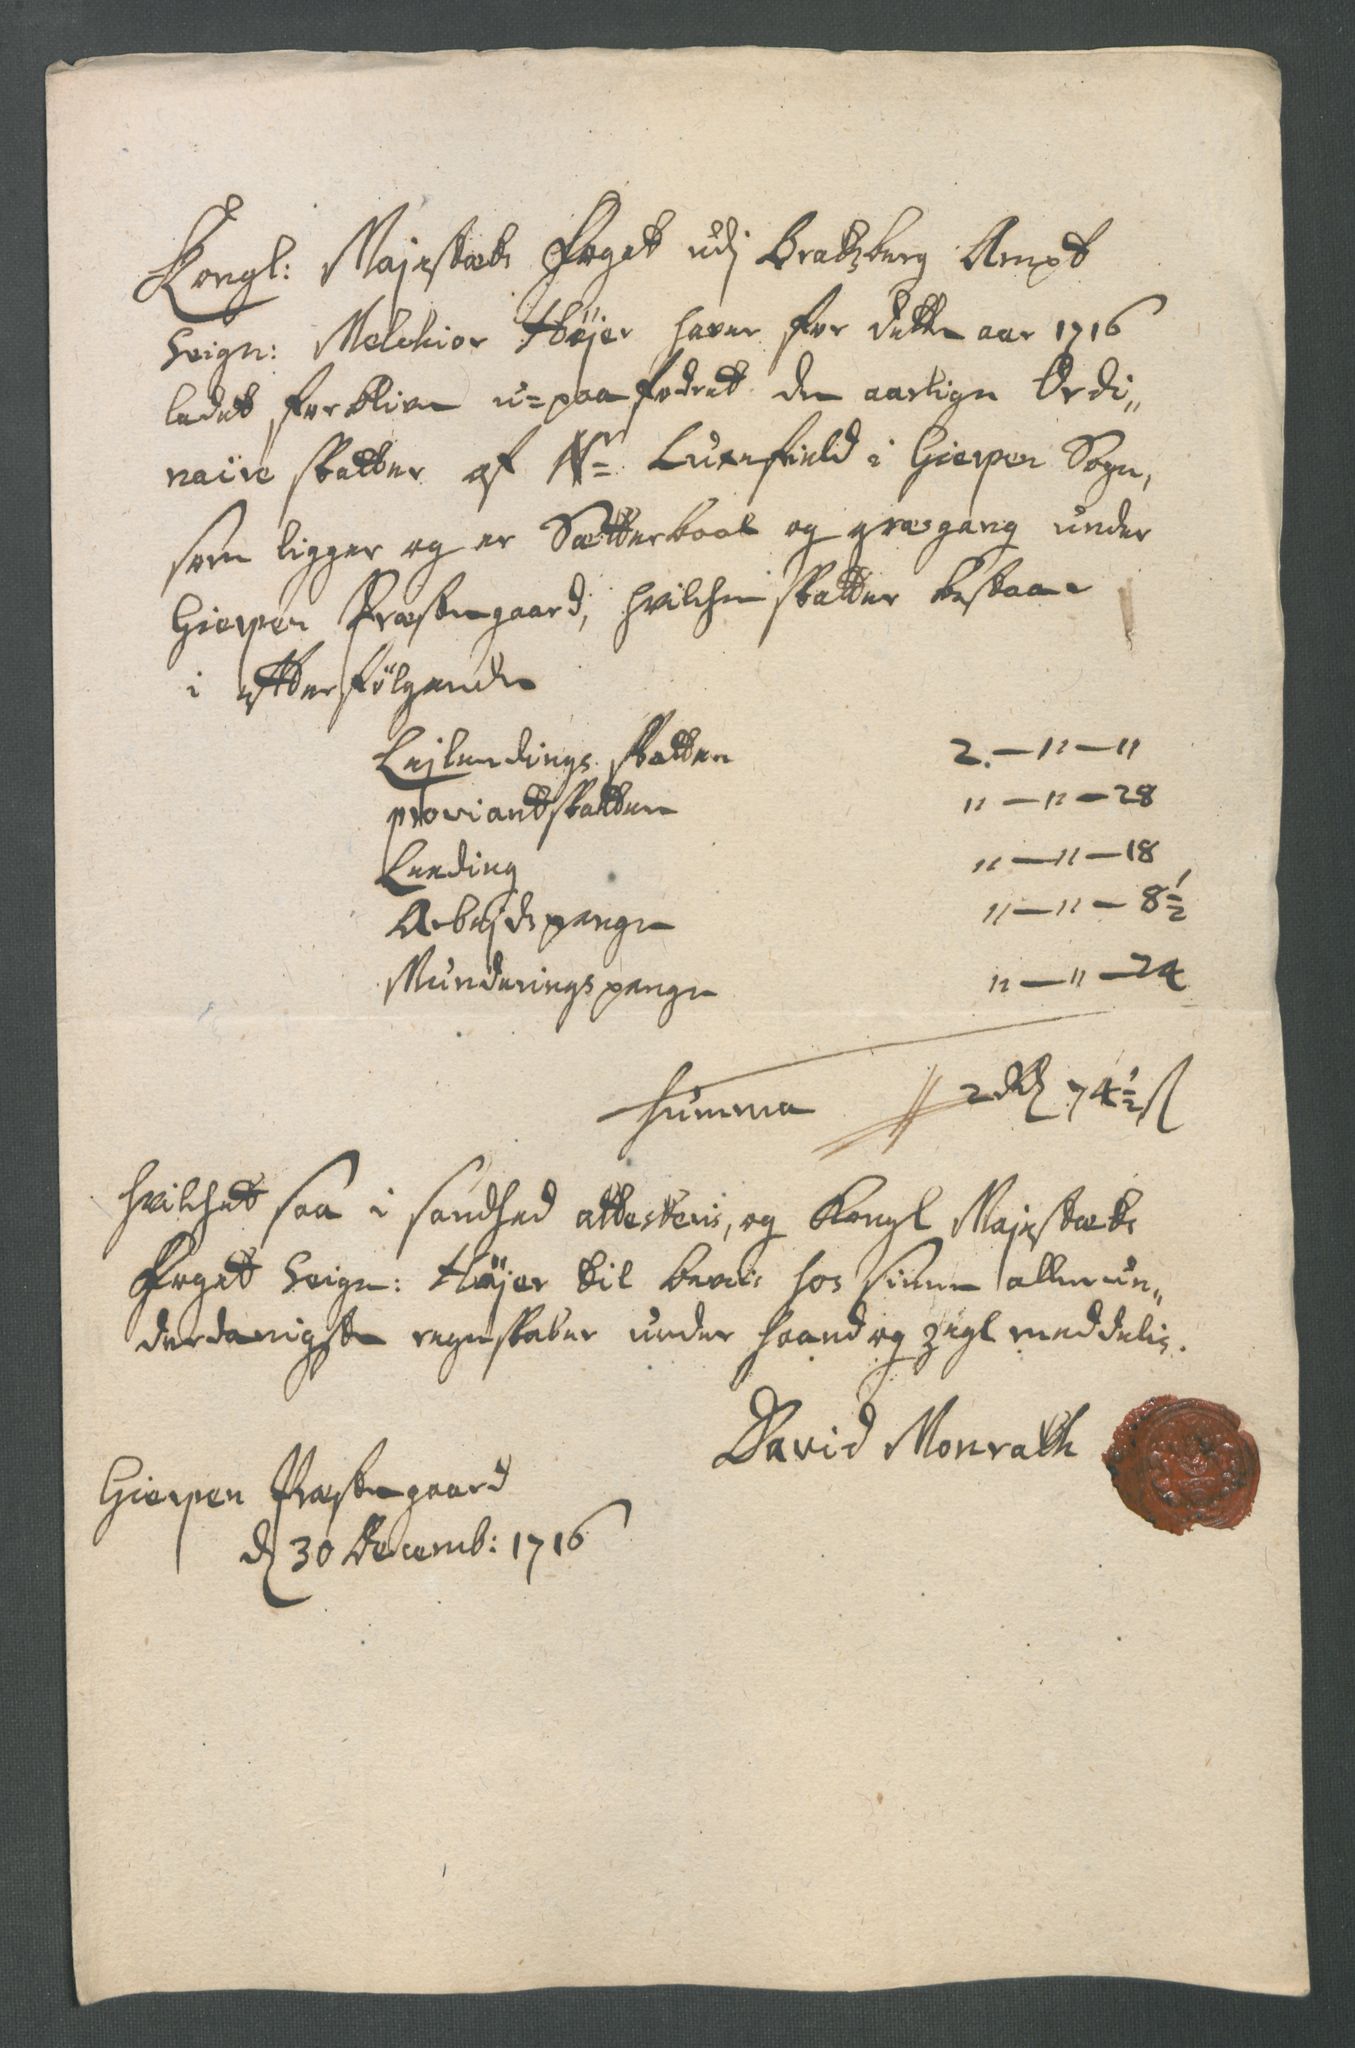 Kongl: Majestæts Foget udj Bratzberg Ampt
Seign: Melchior Højer haver for dette aar 1716
ladet forblive u=paafodret de aarlige Ordi„
naire skatter af Nr= Luxefield i Gierpen Sogn,
som ligger og er Sætterboel og græsgang under
Gierpen Præstegaard, hvilche skatter bestaar
i efterfølgende
Lejlendings skatten 2. — „ — „
proviantskatten „ — „ — 28
Leeding „ — „ — 18
Arbejds penge „ — „ — 8½
Munderings penge „ — „ — 24
Summa 2 Rd 74½ s
hvilchet saa i sandhed attesteris, og Kongl Majestæts
Foget Seign: Højer til beviis hos sinne allerun„
derdanigste regnskaber under haand og zegl meddelis.
David Monrath
Gierpen Præstegaard
d 30 Decemb: 1716